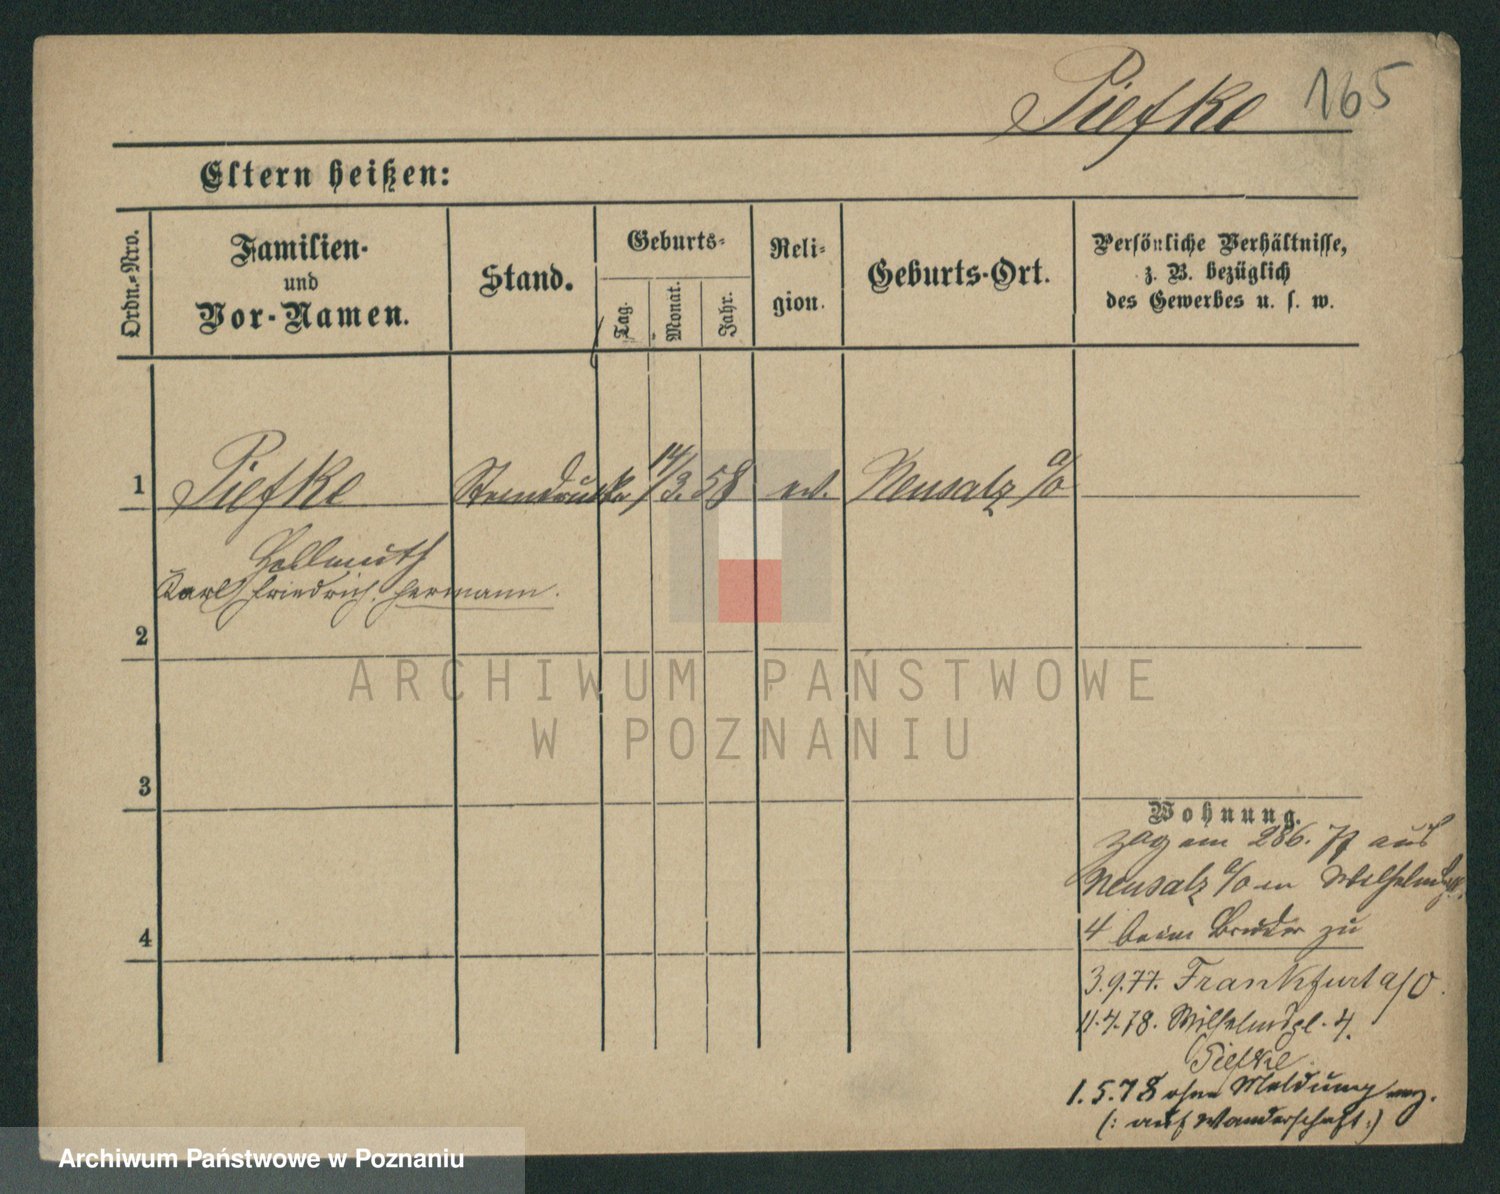 Piefke 165
Eltern heißen:
Ordn.-Nro.
Familien-
und
Vor-Namen.
Stand.
Geburts-
Tag.
Monat.
Jahr.
Reli-
gion.
Geburts-Ort.
Persönliche Verhältnisse,
z. B. bezüglich
des Gewerbes u. s. w.
1 Piefke Steindrucker 14/3. 58 ev. Neusalz a/O
Hellmuth
Karl Friedrich Hermann.
2
3
4
Wohnung.
zog am 28 6. 77 aus
Neusalz a/O
4 beim Bruder zu
3.9.77. Frankfurt a/O.
11.4.78. Wilhelmspl. 4.
Piefke.
1.5.78 ohne Meldung
(: auf Wanderschaft :)
ARCHIWUM PAŃSTWOWE
W POZNANIU
Archiwum Państwowe w Poznaniu